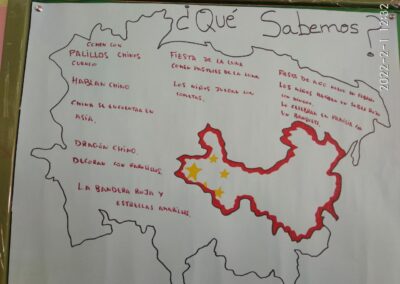 ¿Qué Sabemos?
COMEN CON
PALILLOS CHINOS
CUENCO
HABLAN CHINO
CHINA SE ENCUENTRA EN
ASIA.
DRAGÓN CHINO
DECORAN CON FAROLILLOS.
LA BANDERA ROJA Y
ESTRELLAS AMARILLAS.
FIESTA DE LA LUNA
COMEN PASTELES DE LA LUNA
LOS NIÑOS JUEGAN CON
COMETAS.
FIESTA DE AÑO NUEVO EN
LOS NIÑOS SOBRE ROJO
CON DINERO.
LO CELEBRAN EN FAMILIA CON
UN BANQUETE
2022-2-1 12:52